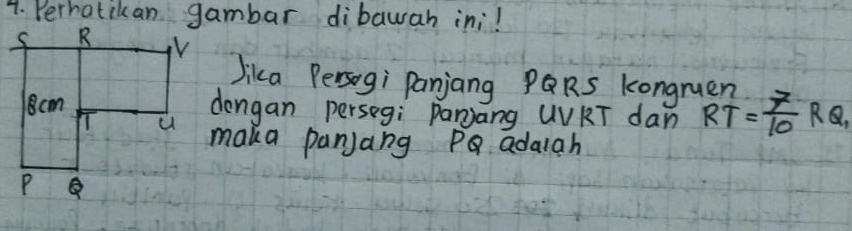 4. Perhatikan gambar dibawah ini!
S R V
Jika Persegi Panjang PQRS kongruen
8cm T U dengan persegi Panjang UVRT dan RT = 7/10 RQ,
maka panjang PQ adalah
P Q